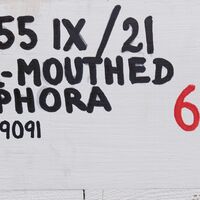 55 IX/21
-MOUTHED
PHORA
9091
6